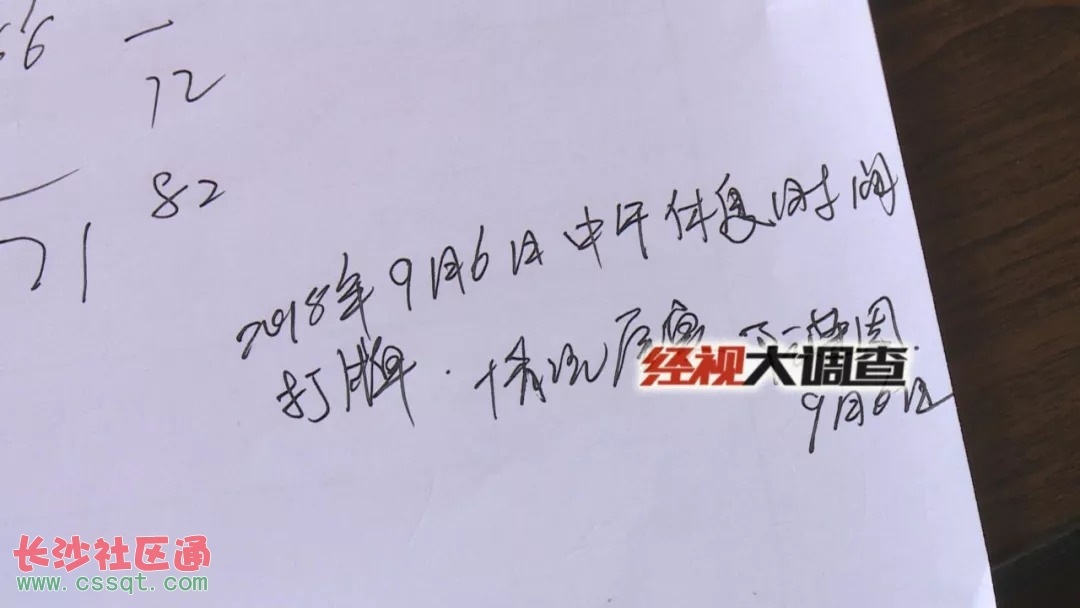 66 一
72
82
71
2018年9月6日中午休息时间
打牌.情况属实
经视大调查
9月6日
长沙社区通
www.cssqt.com